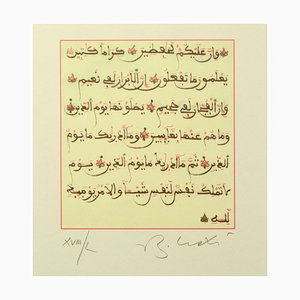 وإن عليكم لحفظين كراما كتبين
يعلمون ما تفعلون إن الأبرار لفي نعيم
وإن الفجار لفي جحيم يصلونها يوم الدين
وما هم عنها بغائبين وما أدريك ما يوم
الدين ثم ما أدريك ما يوم الدين يوم
لا تملك نفس لنفس شيئا والأمر يومئذ
لله
XVIII/L